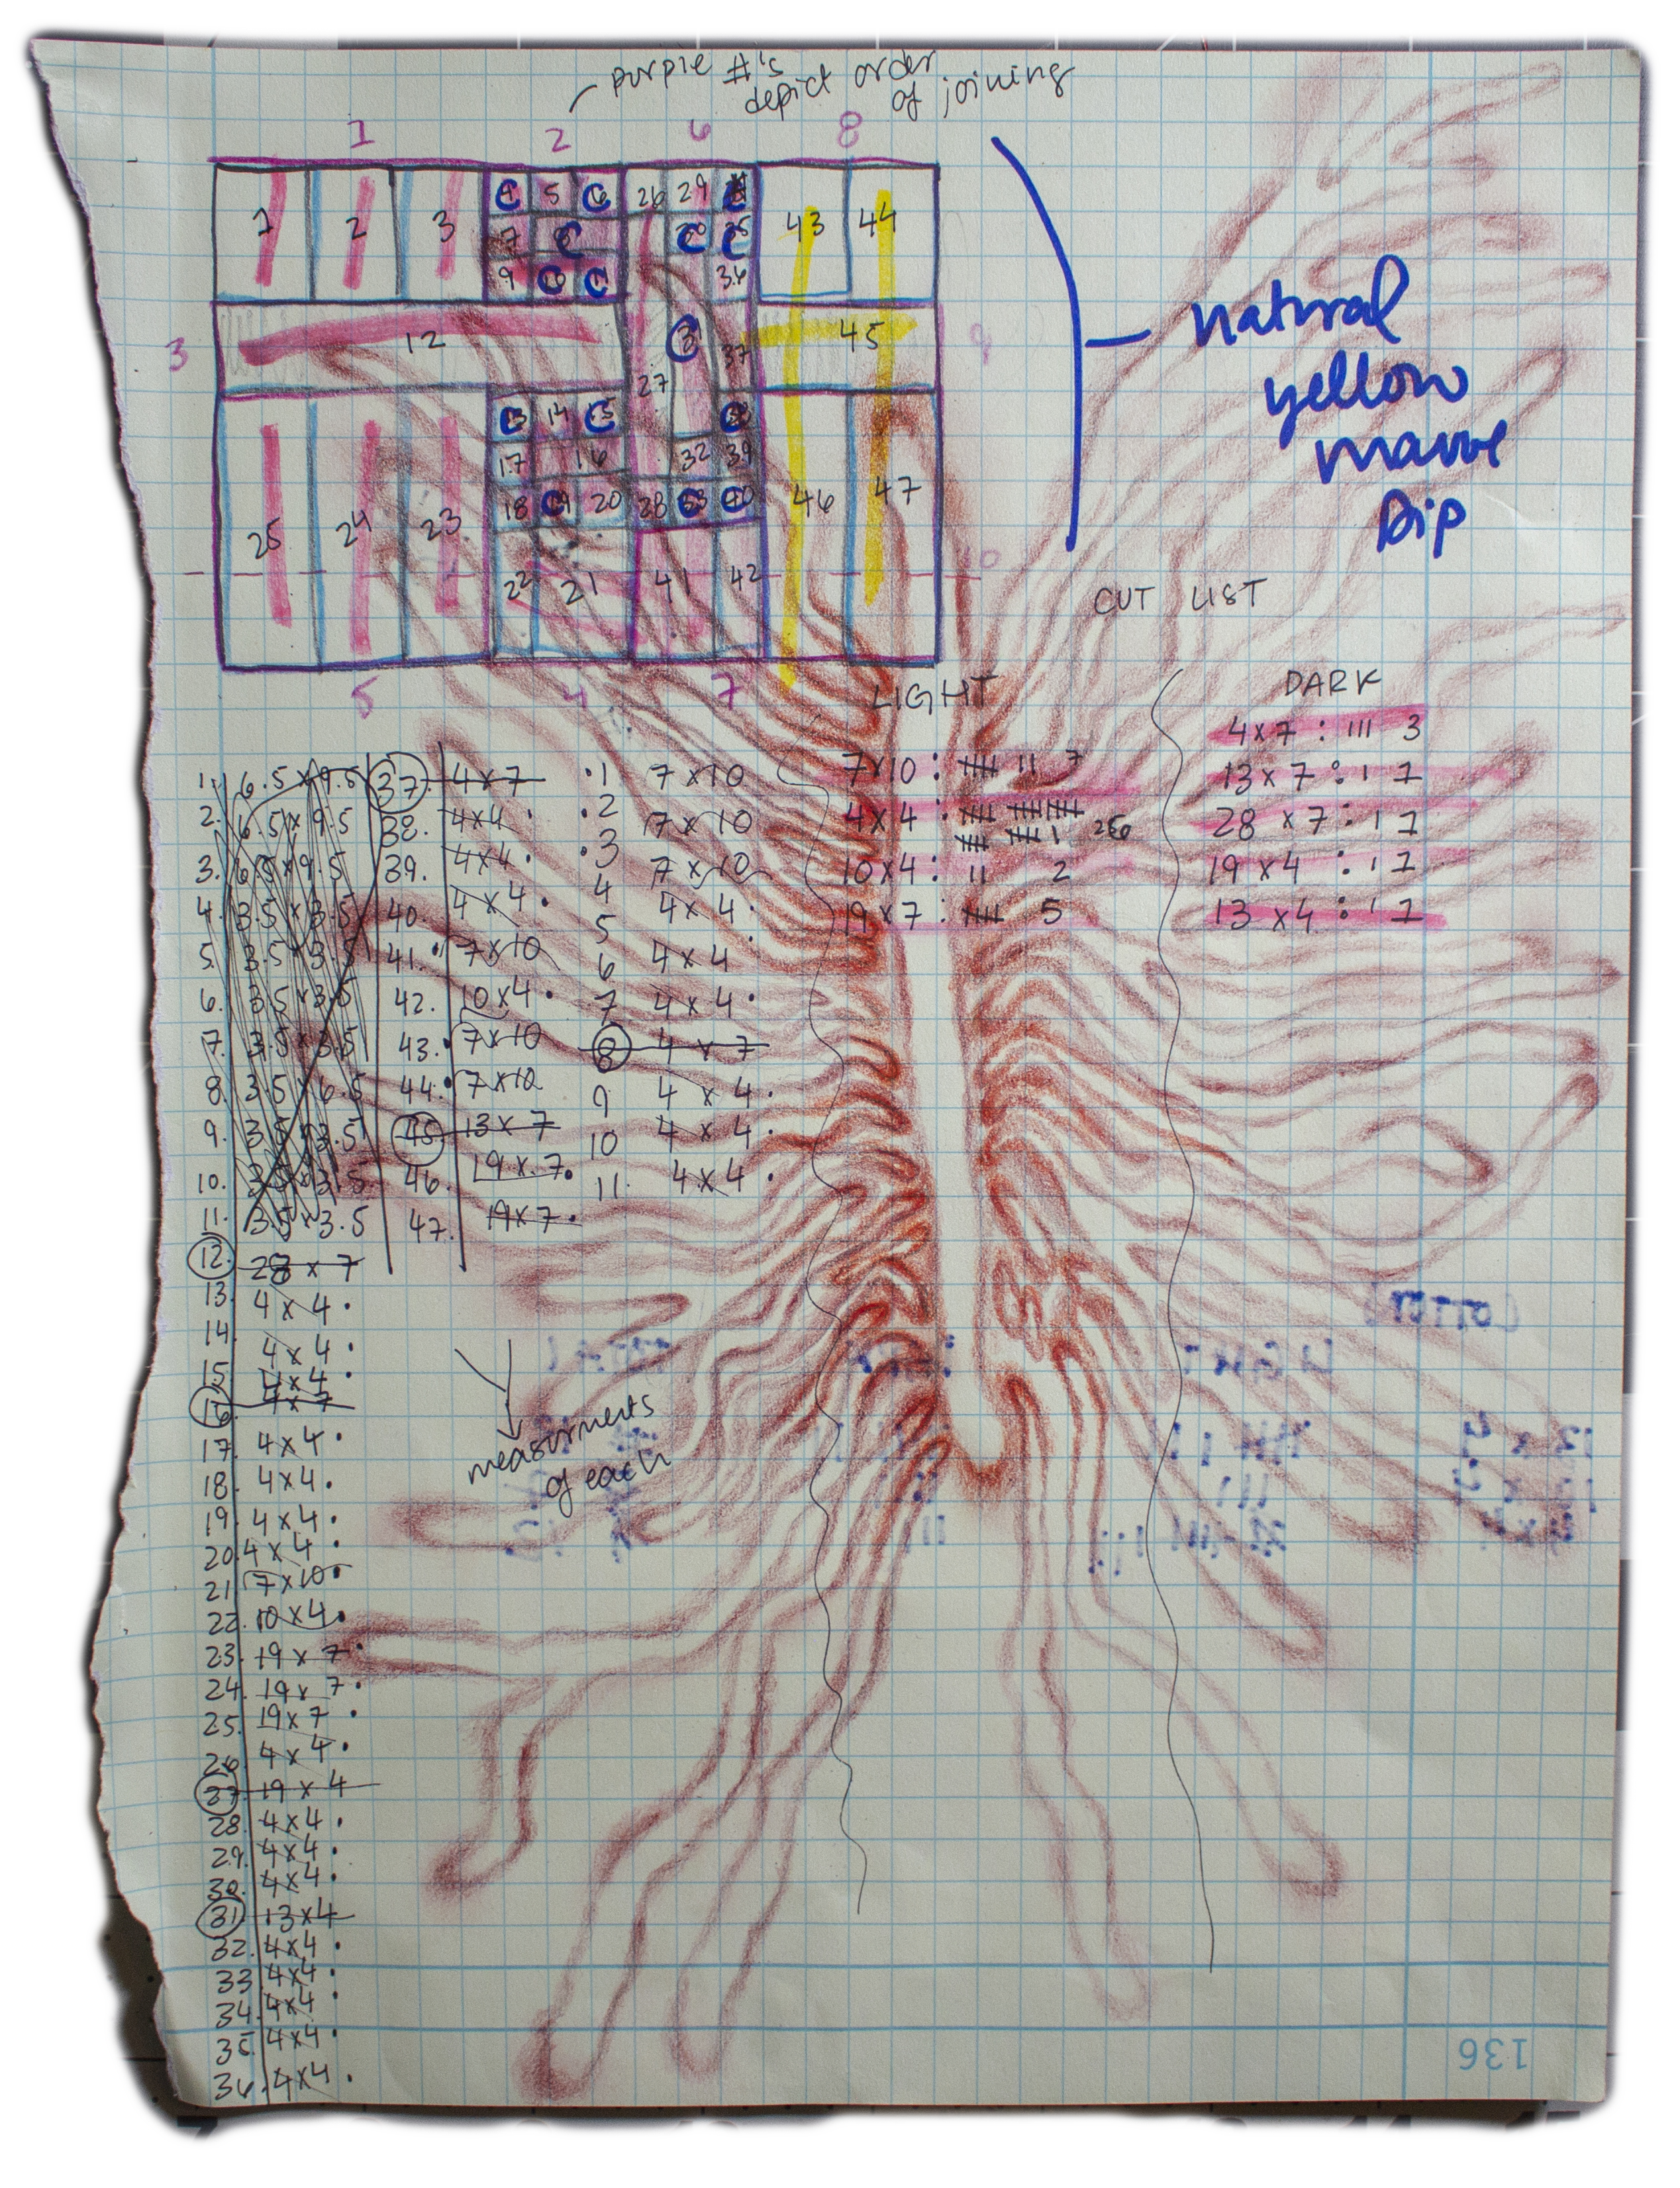 purple #'s
depict order
of joining
1 2 6 8
1 2 3 5 26 29 43 44
7 9 36
3 12 37 45 9
27
14 32 39
17 16
25 24 23 18 20 28 46 47
22 21 41 42
10
5 4 7
natural
yellow
mauve
Dip
CUT LIST
LIGHT
7x10 : 7
4x4 :
10x4 : 11 2
19x7 : 5
DARK
4x7 : 111 3
13x7 : 1 1
28 x7 : 1 1
19 x4 : 1 1
13 x4 : 1 1
1. 6.5 x 9.5
2. 6.5 x 9.5
3. 6.5 x 9.5
4. 3.5 x 3.5
5. 3.5 x 3.5
6. 3.5 x 3.5
7. 3.5 x 3.5
8. 3.5 x 6.5
9. 3.5 x 3.5
10. 3.5 x 3.5
11. 3.5 x 3.5
12. 28 x 7
13. 4 x 4 .
14. 4 x 4 .
15. 4x4 .
16. 4x7
17. 4x4 .
18. 4x4.
19. 4x4.
20. 4x4 .
21. 7x10.
22. 10x4.
23. 19x7.
24. 19x7.
25. 19x7 .
26. 4x4.
27. 19 x 4
28. 4x4 .
29. 4x4.
30. 4x4.
31. 13x4
32. 4x4 .
33. 4x4 .
34. 4x4 .
35. 4x4 .
36. 4x4 .
37. 4x7
38. 4x4 .
39. 4x4 .
40. 4x4 .
41. 7x10
42. 10x4.
43. 7x10
44. 7x10
45. 13x7
46. 19x7.
47. 19x7.
1 7x10
2 7x10
3 7x10
4 4x4 .
5 4x4 .
6 4x4 .
7
8 4 x 7
9 4 x 4 .
10 4 x 4 .
11. 4x4 .
measurments
of each
136